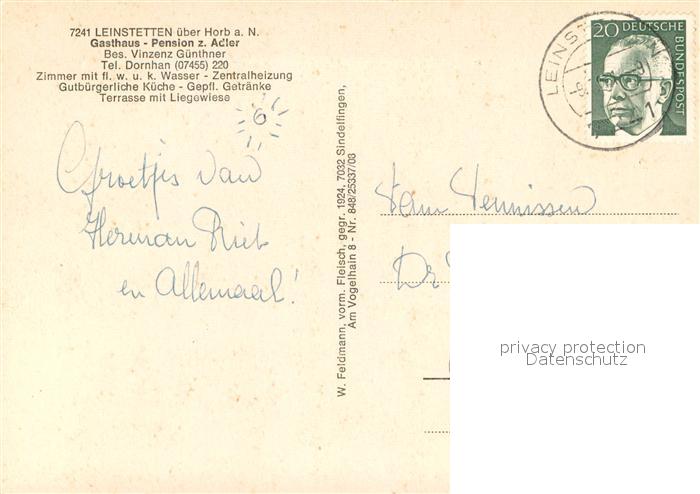 7241 LEINSTETTEN über Horb a. N.
Gasthaus - Pension z. Adler
Bes. Vinzenz Günthner
Tel. Dornhan (07455) 220
Zimmer mit fl. w. u. k. Wasser - Zentralheizung
Gutbürgerliche Küche - Gepfl. Getränke
Terrasse mit Liegewiese
6
Groetjes van
Herman Riet
en Allemaal!
W. Feldmann, vorm. Fleisch, gegr. 1924, 7032 Sindelfingen,
Am Vogelhain 8 - Nr. 848/25337/03
20 DEUTSCHE
BUNDESPOST
LEINST
Fam Teunissen
Dr
privacy protection
Datenschutz